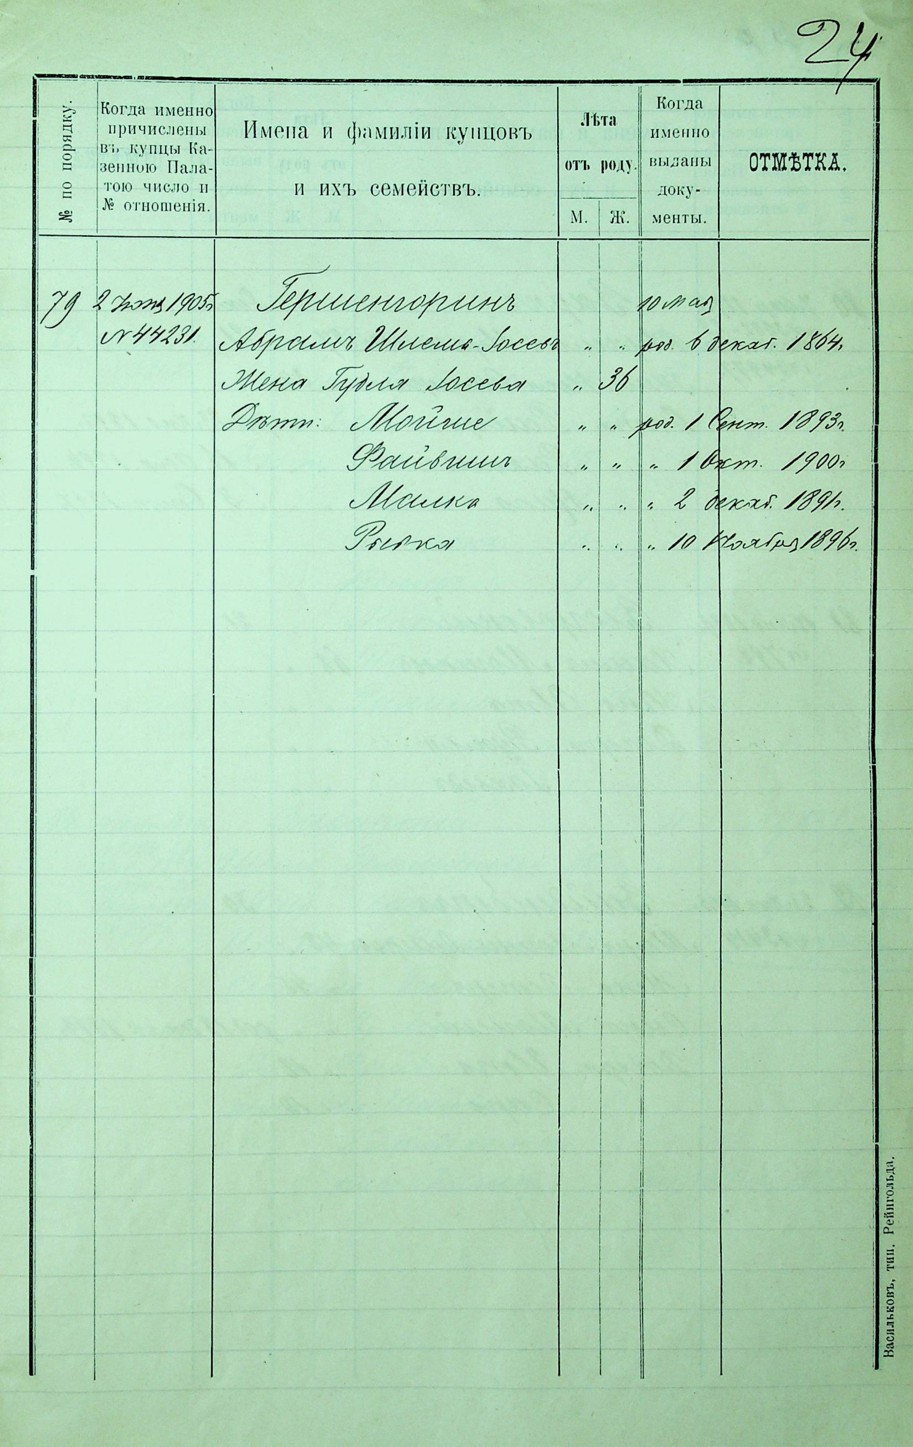 24
№ по порядку.
Когда именно
причислены
въ купцы Ка-
зенною Пала-
тою число и
№ отношенія.
Имена и фамиліи купцовъ
и ихъ семействъ.
Лѣта
отъ роду.
М. Ж.
Когда
именно
выданы
доку-
менты.
ОТМѢТКА.
79 2 1905г Гершенгоринъ 10 мая
№ 44231 Абрамъ Шлема-Іосевъ „ „ род. 6 декаб. 1864г.
Жена Гудля Іосева „ 36
Дѣти: Мойше „ „ род. 1 Сент. 1893г.
Файвишъ „ „ „ 1 Окт. 1900г
Малка „ „ „ 2 декаб. 1891г.
Рывка „ „ „ 10 Ноября 1896г.
Васильковъ, тип. Рейнгольда.